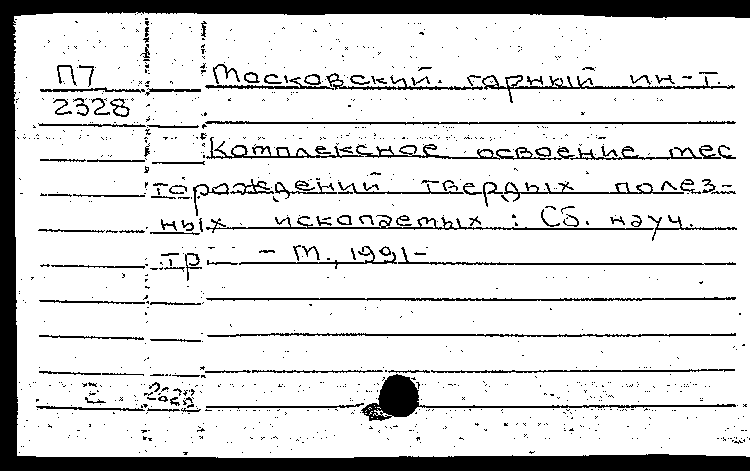 П7 Московский горный ин-т.
2328
Комплексное освоение мес
торождений твердых полез-
ных ископаемых : Сб. науч.
тр. - М., 1991-